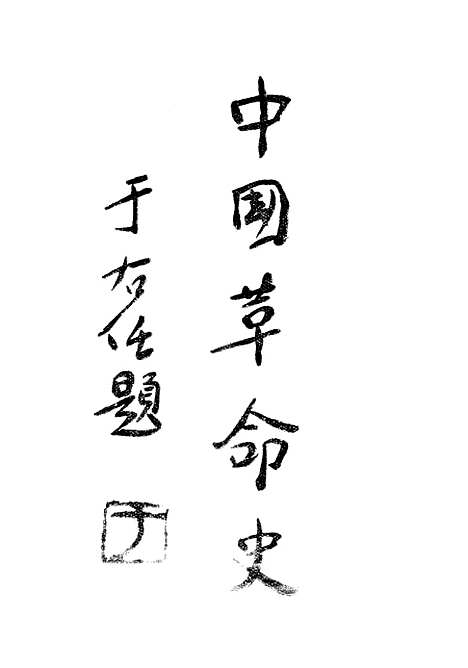 中国革命史
于右任題
于